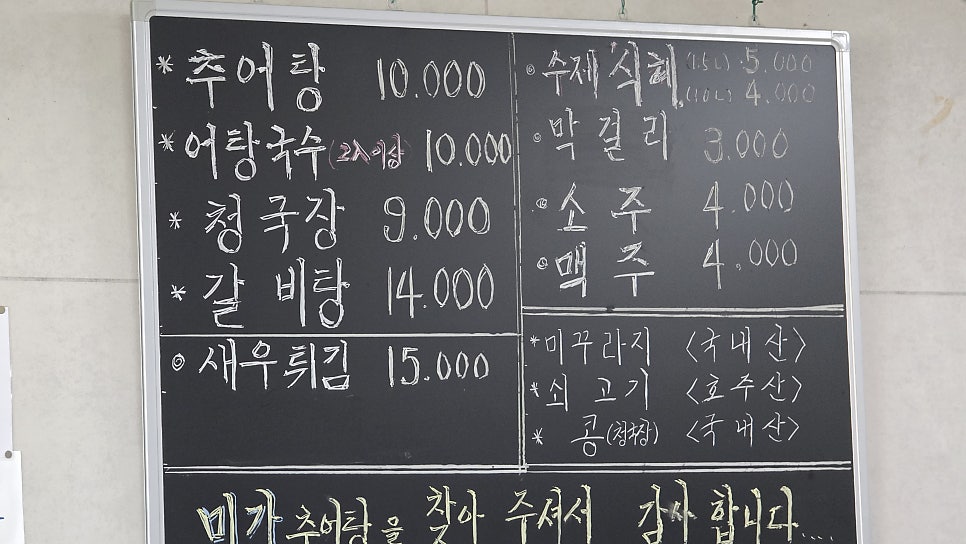 * 추어탕 10.000
* 어탕국수(2人이상) 10.000
* 청국장 9.000
* 갈비탕 14.000
◎ 새우튀김 15.000
◎ 수제식혜 (1.5L) 5.000
(1.0L) 4.000
◎ 막걸리 3.000
◎ 소주 4.000
◎ 맥주 4.000
* 미꾸라지 <국내산>
* 쇠고기 <호주산>
* 콩(청국장) <국내산>
미가 추어탕을 찾아 주셔서 감사합니다....